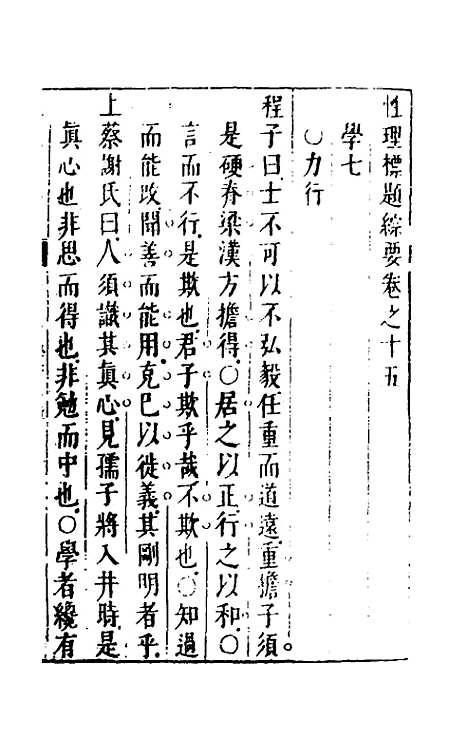 性理標題綜要卷之十五
學七
○力行
程子曰士不可以不弘毅任重而道遠重擔子須
是硬脊梁漢方擔得○居之以正行之以和○
言而不行是欺也君子欺乎哉不欺也○知過
而能改聞善而能用克己以從義其剛明者乎
上蔡謝氏曰人須識其眞心見孺子將入井時是
眞心也非思而得也非勉而中也○學者纔有